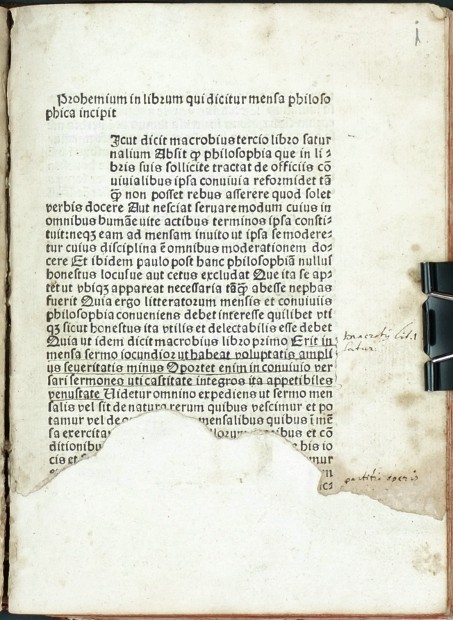 i
Prohemium in librum qui dicitur mensa philoso
phica incipit
Sicut dicit macrobius tercio libro satur
nalium Absit ꝙ philosophia que in li⸗
bris suis sollicite tractat de officiis cō
uiuialibus ipsa conuiuia reformidet tā
ꝙ non posset rebus asserere quod solet
verbis docere Aut nesciat seruare modum cuius in
omnibus humāe uite actibus terminos ipsa consti⸗
tuit: neqꝫ eam ad mensam inuito ut ipsa se modere⸗
tur cuius disciplina ē omnibus moderationem do⸗
cere Et ibidem paulo post hanc philosophiā nullus
honestus locus ue aut cetus excludat Que ita se ap⸗
tet ut vbiqꝫ appareat necessaria tāꝙ abesse nephas
fuerit Quia ergo litteratorum mensis et conuiuiis
philosophia conueniens debet interesse quilibet vti
qꝫ sicut honestus ita vtilis et delectabilis esse debet
Quia ut idem dicit macrobius libro primo Erit in
mensa sermo iocundior ut habeat voluptatis ampli
us seueritatis minus Oportet enim in conuiuio ver
sari sermones uti castitate integros ita appetibiles
venustate Uidetur omnino expediens ut sermo men
salis vel sit de natura rerum quibus vescimur et po
tamur vel de mensalibus quibus ī mē
sa exercita illorum ibus et cō
ditionibu his io
cis et mur
macrobij lib. 1
Satur.
partitio